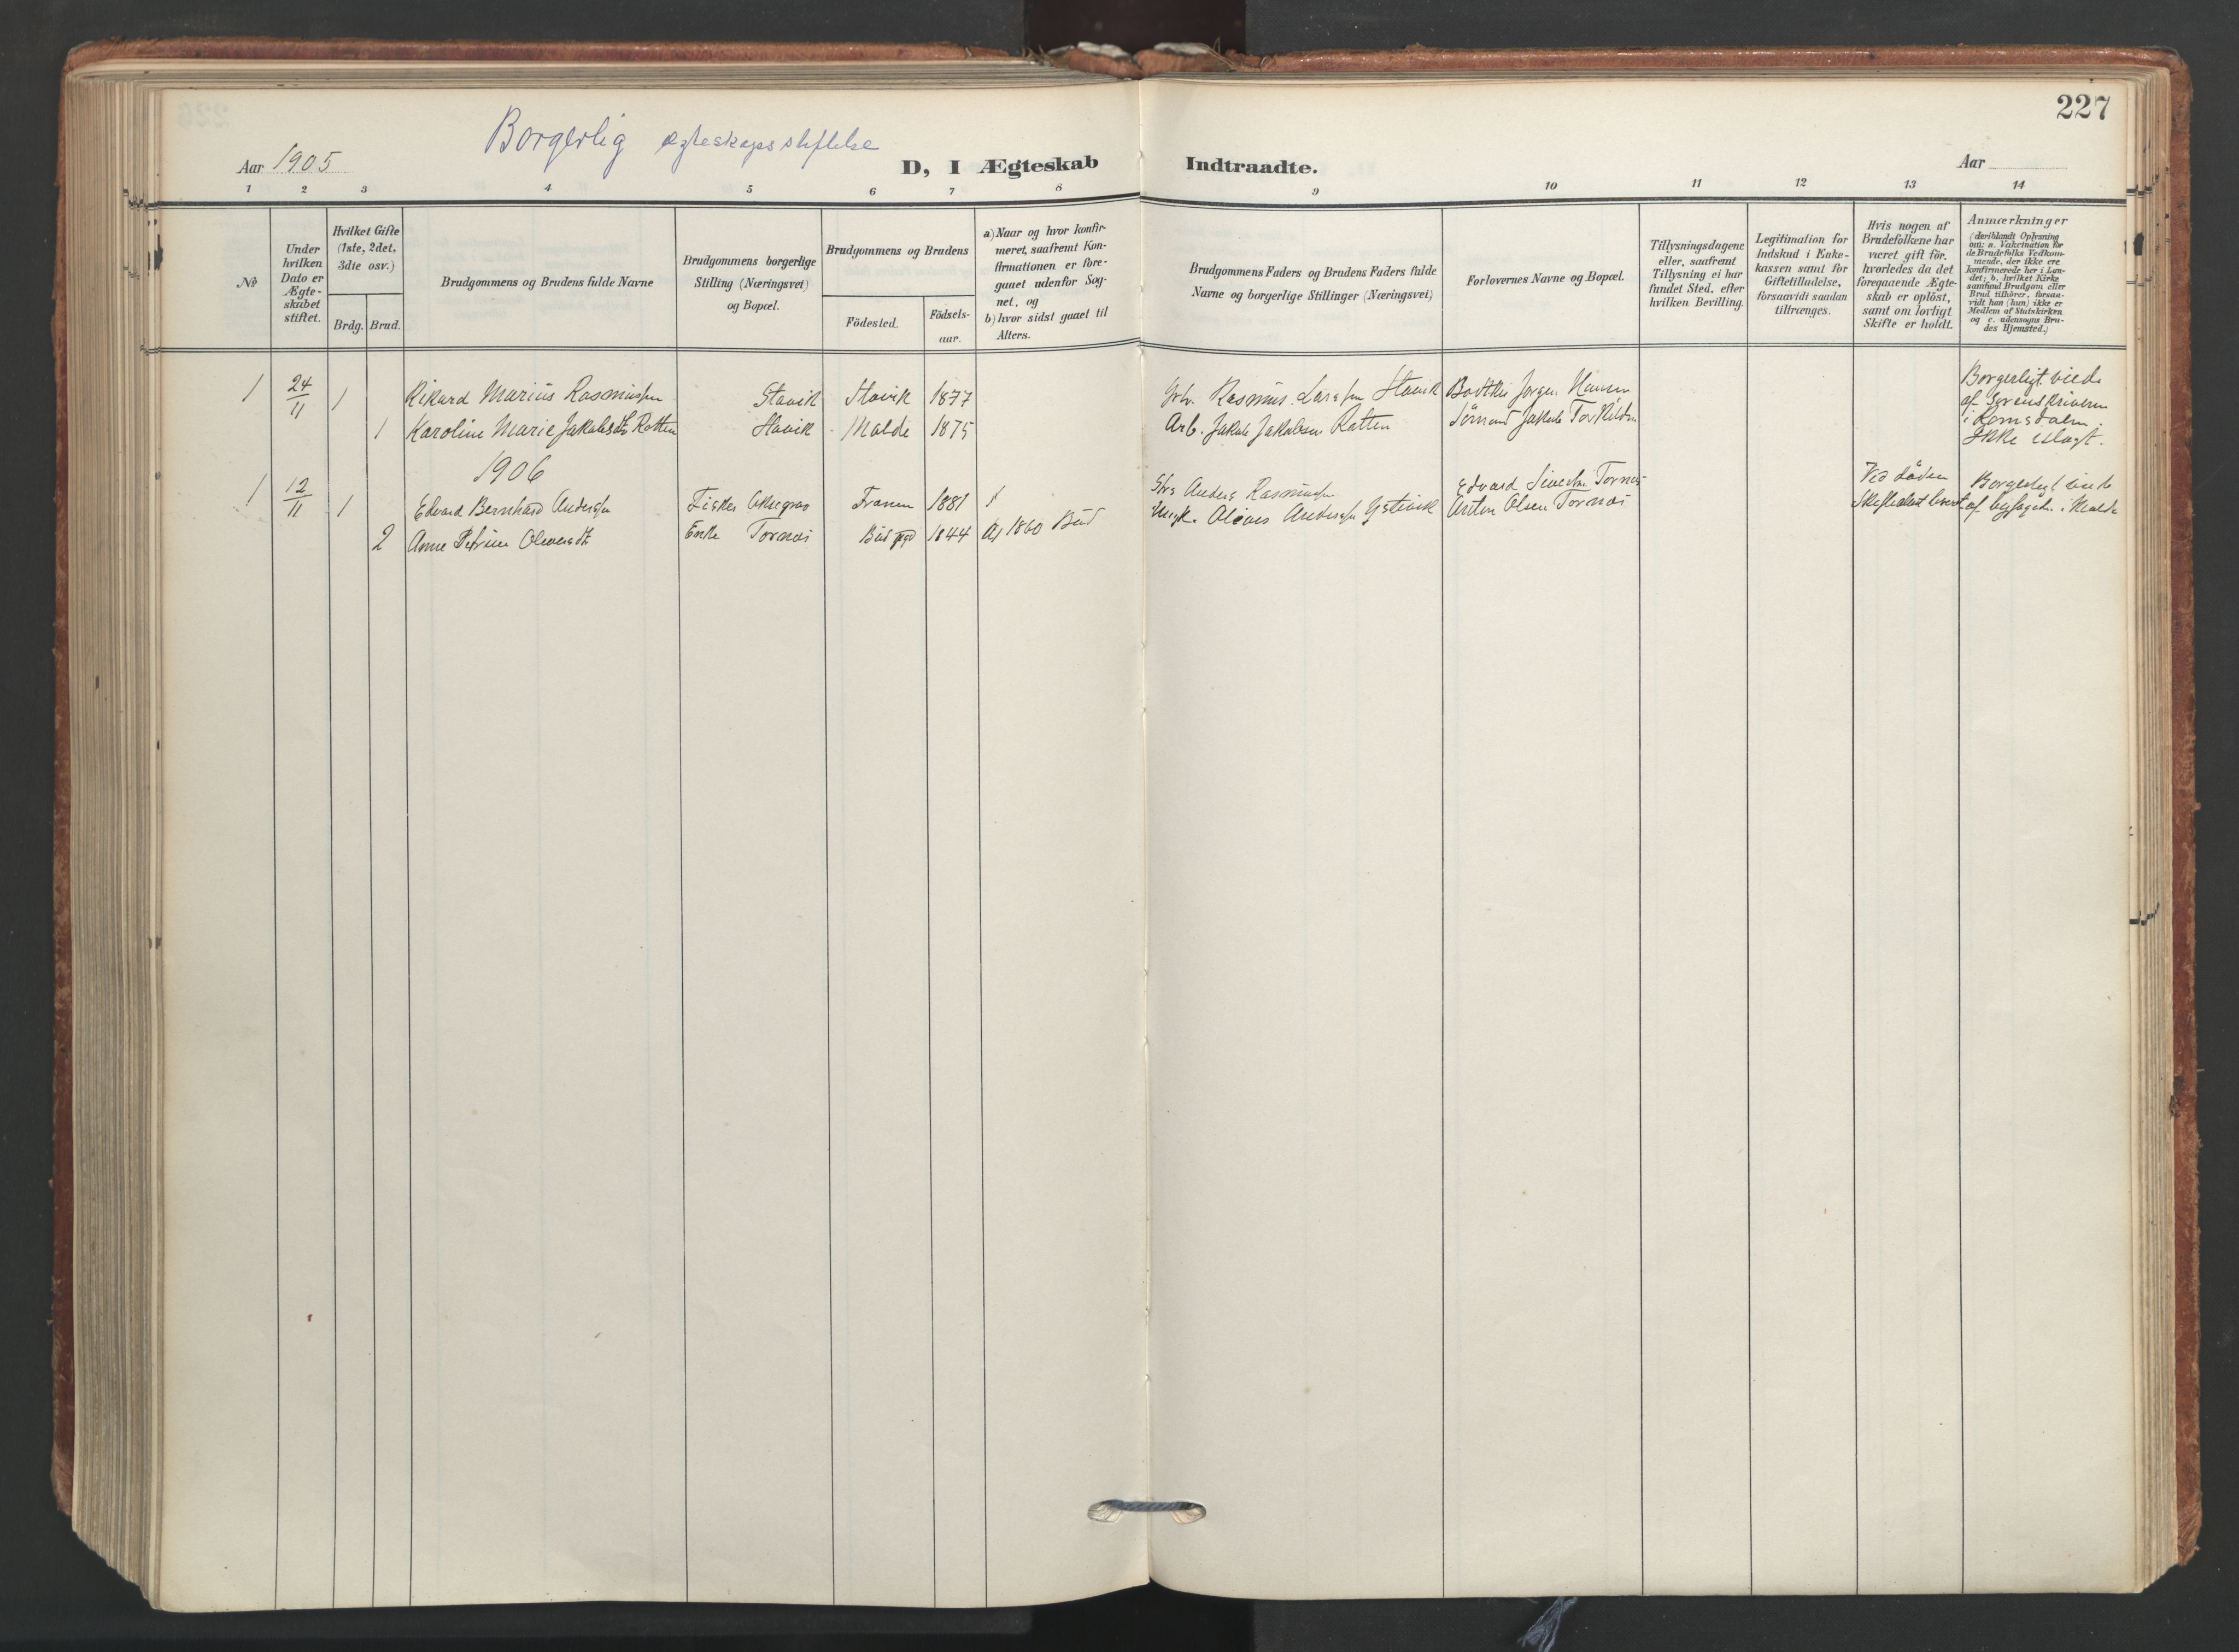 227
Borgerlig egteskapsstiftelse
Aar 1905
D, I Ægteskab Indtraadte.
Aar
1 2 3 4 5 6 7 8 9 10 11 12 13 14
No
Under hvilken Dato er Ægte-skabet stiftet.
Hvilket Gifte (1ste, 2det, 3die osv.)
Brdg. Brud.
Brudgommens og Brudens fulde Navne
Brudgommens borgerlige Stilling (Næringsvei) og Bopæl.
Brudgommens og Brudens
Födested.
Födsels-aar.
a) Naar og hvor konfir-meret, saafremt Kon-firmationen er fore-gaaet udenfor Sog-net, og
b) hvor sidst gaaet til Alters.
Brudgommens Faders og Brudens Faders fulde Navne og borgerlige Stillinger (Næringsvei)
Forlovernes Navne og Bopæl.
Tillysningsdagene eller, saafremt Tillysning ei har fundet Sted, efter hvilken Bevilling.
Legitimation for Indskud i Enke-kassen samt for Giftetilladelse, forsaavidt saadan tiltrænges.
Hvis nogen af Brudefolkene har været gift för, hvorledes da det foregaaende Ægte-skab er oplöst, samt om lovligt Skifte er holdt.
Anmærkninger (deriblandt Oplysning om: a. Vakcination for de Brudefolks Vedkom-mende, der ikke ere konfirmerede her i Lan-det; b. hvilket Kirke-samfund Brudgom eller Brud tilhörer, forsaa-vidt han (hun) ikke er Medlem af Statskirken og c. udensogns Bru-des Hjemsted.)
1 24/11 1 Rikard Marius Rasmussen Stavik Stavik 1877 Rasmus Larssen Stavik Jørgen Hansen Borgerligt viede
af Sorenskriveren
1 Karoline Marie Jakobsdtr Rotten Stavik Molde 1875 Arb. Jakob Jakobsen Rotten Jakob i Romsdalen.
Ikke
1906
1 12/11 1 Edvard Bernhard Anderssen Fisker Frænen 1881 Anders Rasmussen Edvard Tornæs Ved döden Borgerligt viede
2 Anne Petrine Oliversdtr Enke Tornæs Bud 1844 a) 1860 Bud Anderssen Anton Olsen Tornæs af byfogden i Molde